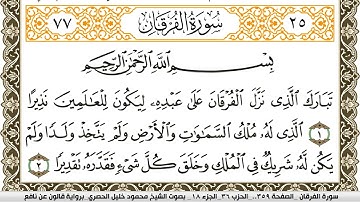 ٧٧ سُورَةُ الْفُرْقَانِ ٢٥
بِسْمِ اللَّهِ الرَّحْمَٰنِ الرَّحِيمِ
تَبَارَكَ الَّذِى نَزَّلَ الْفُرْقَانَ عَلَىٰ عَبْدِهِۦ لِيَكُونَ لِلْعَالَمِينَ نَذِيرًا
١ الَّذِى لَهُۥ مُلْكُ السَّمَاوَاتِ وَالْأَرْضِ وَلَمْ يَتَّخِذْ وَلَدًا وَلَمْ
يَكُن لَّهُۥ شَرِيكٌ فِى الْمُلْكِ وَخَلَقَ كُلَّ شَىْءٍ فَقَدَّرَهُۥ تَقْدِيرًا ٢
سورة الفرقان _الصفحة ٣٥٩_ الحزب ٣٦_ الجزء ١٨_ بصوت الشيخ محمود خليل الحصري_برواية قالون عن نافع